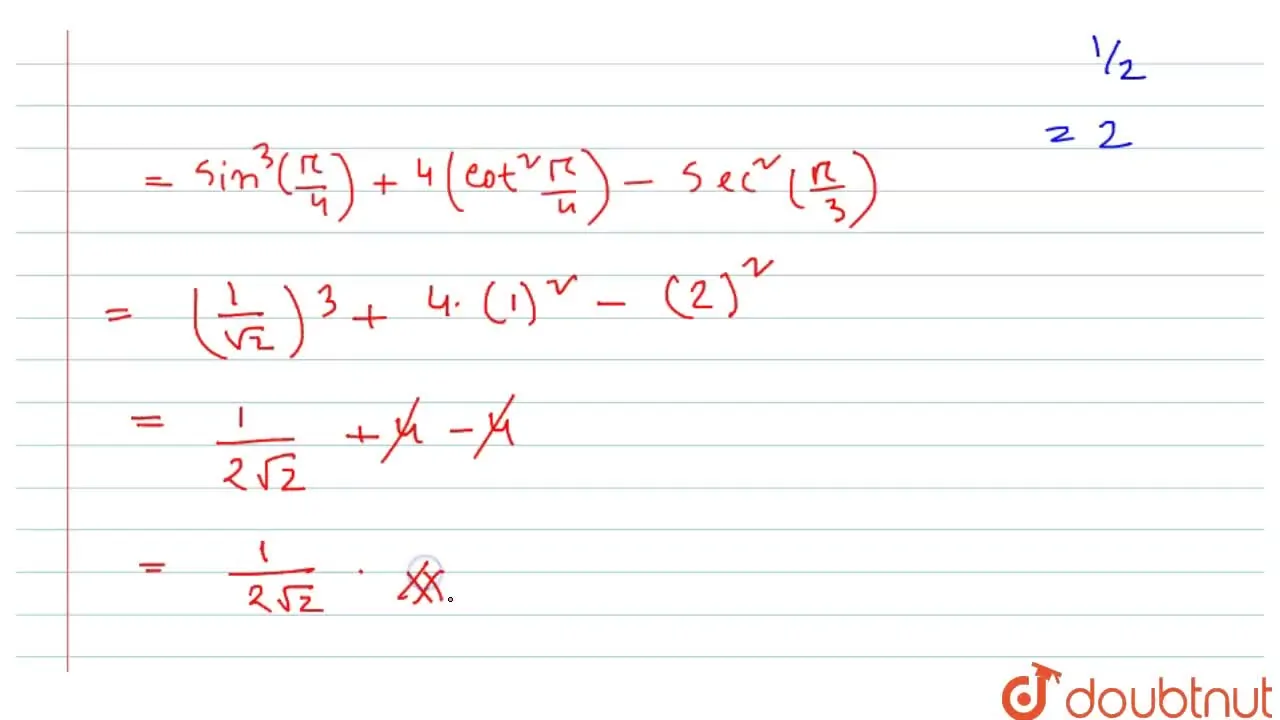 1/2
= 2
= sin³(π/4) + 4(cot² π/4) − sec²(π/3)
= (1/√2)³ + 4·(1)² − (2)²
= 1/2√2 + 4 − 4
= 1/2√2 .
doubtnut